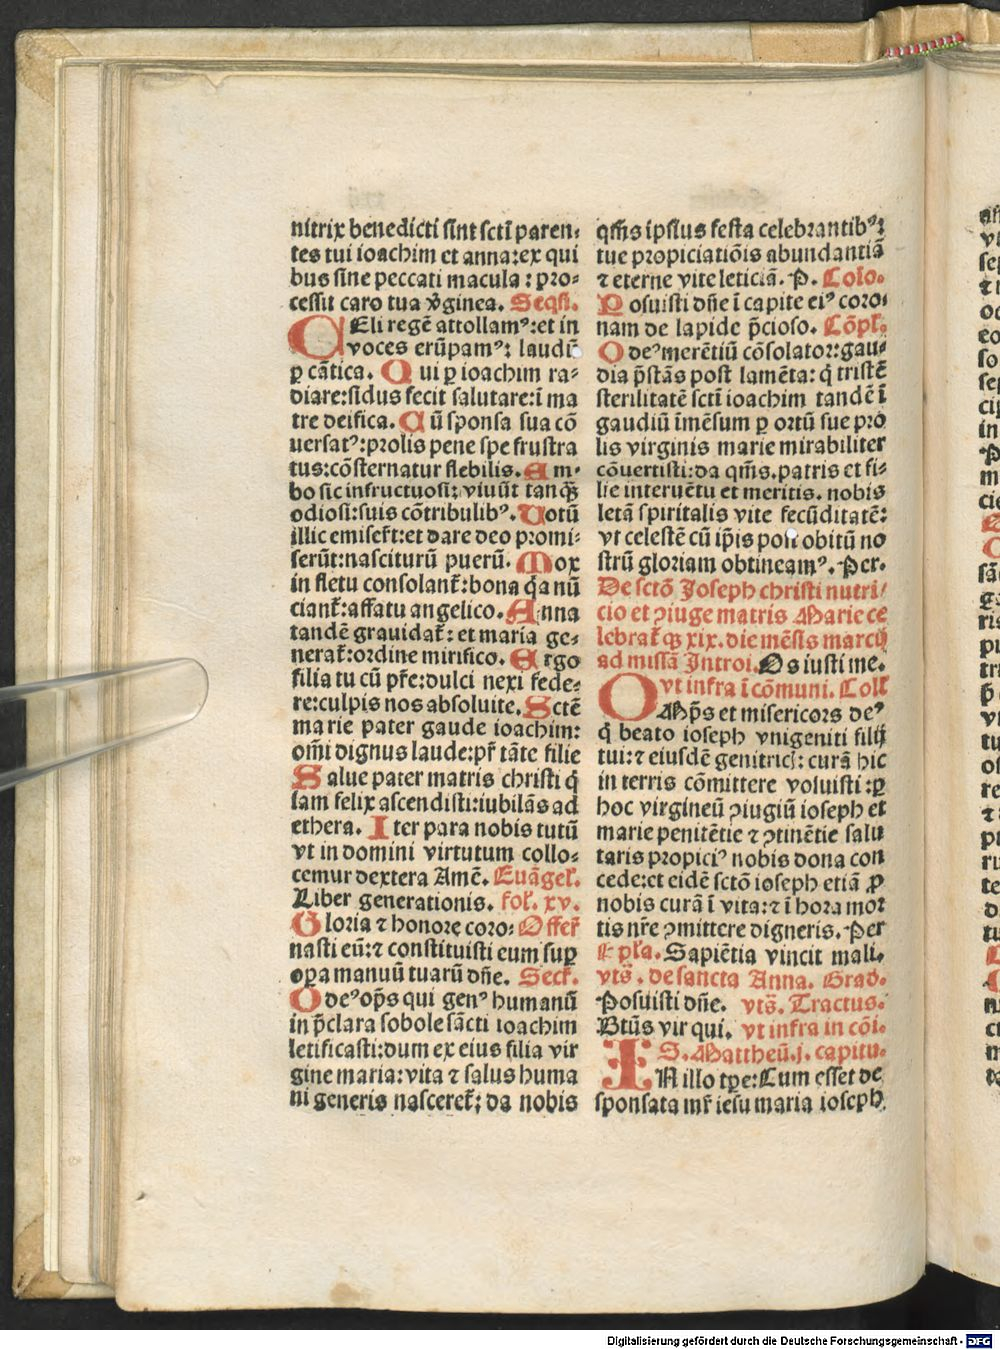 nitrix benedicti sint scti᷑ paren⸗
tes tui ioachim et anna: ex qui
bus sine peccati macula : pro⸗
cessit caro tua v̾ginea. Seqs̄.
CEli regē attollamꝰ: et in
voces erūpamꝰ: laudū
ꝑ cātica. Qui ꝑ ioachim ra⸗
diare: sidus fecit salutare: i ma
tre deifica. Cū sponsa sua cō
uersatꝰ: prolis pene spe frustra
tus: cōsternatur flebilis. Am⸗
bo sic infructuosi: viuūt tanqȝ
odiosi: suis cōtribulibꝰ. Votū
illic emiser̄t: et dare deo promi⸗
serūt: nasciturū puerū. Mox
in fletu consolant᷑: bona q̄a nū
ciant᷑: affatu angelico. Anna
tandē grauidat᷑: et maria ge⸗
nerat᷑: ordine mirifico. Ergo
filia tu cū pr̄e: dulci nexi fede⸗
re: culpis nos absoluite. Sctē
marie pater gaude ioachim:
om̄i dignus laude: pr̄ tāte filie
Salue pater matris christi q̄
iam felix ascendisti: iubilās ad
ethera. Iter para nobis tutū
vt in domini virtutum collo⸗
cemur dextera Amē. Euāgel᷑.
Liber generationis. fol᷑. xv.
Gloria ⁊ honore coro: Offer᷑
nasti eū: ⁊ constituisti eum suꝑ
opa manuū tuarū dn̄e. Secr᷑.
O deꝰ op̄s qui genꝰ humanū
in p̄clara sobole sācti ioachim
letificasti: dum ex eius filia vir
gine maria: vita ⁊ salus huma
ni generis nasceret᷑: da nobis
qm̄s ipsius festa celebrantibꝰ:
tue propiciatiōis abundantiā
⁊ eterne vite leticiā. P. Cōło.
Posuisti dn̄e ī capite eiꝰ coro⸗
nam de lapide p̄cioso. Cōpl᷑.
O deꝰ merētiū cōsolator: gau⸗
dia p̄stās post lamēta: q̄ tristē
sterilitatē scti᷑ ioachim tandē ī
gaudiū īmēsum ꝑ ortū sue pro
lis virginis marie mirabiliter
cōuertisti: da qm̄s. patris et fi⸗
lie interuētu et meritis. nobis
letā spiritalis vite fecūditatē:
vt celestē cū ip̄is post obitū no
strū gloriam obtineamꝰ. Per.
De sctō Joseph christi nutri/
cio et ꝯiuge matris Marie ce
lebrat᷑ qȝ xix. die mēsis marcij
ad missā Introi. Os iusti me.
vt infra ī cōmuni. Coll᷑
OMp̄s et misericors deꝰ
q̄ beato ioseph vnigeniti filij
tui: ⁊ eiusdē genitrici: curā hic
in terris cōmittere voluisti: ꝑ
hoc virgineū ꝯiugiū ioseph et
marie penitētie ⁊ ꝯtinētie salu
taris propiciꝰ nobis dona con
cede: et eidē sctō ioseph etiā ꝓ
nobis curā ī vita: ⁊ ī hora mor
tis nr̄e ꝯmittere digneris. Per
Epl᷑a. Sapiētia vincit mali.
vts̄. de sancta Anna. Grad.
Posuisti dn̄e. vts̄. Tractus.
Btūs vir qui. vt infra in cōi.
S. Mattheū. j. capitu.
IN illo tꝑe: Cum esset de
sponsata mr̄ iesu maria ioseph
Digitalisierung gefördert durch die Deutsche Forschungsgemeinschaft - DFG